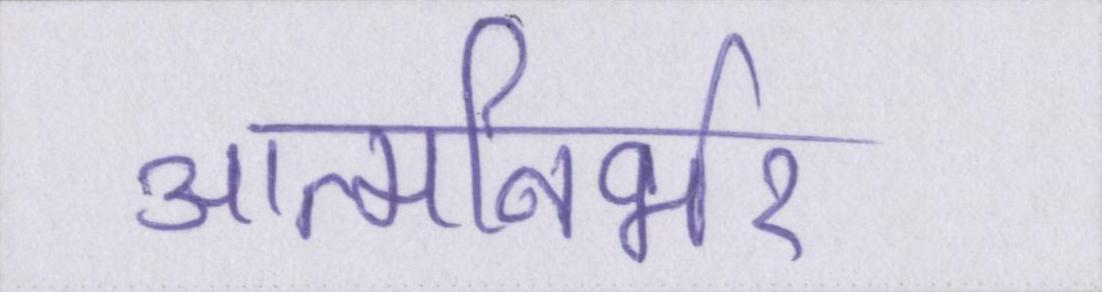 आत्मनिर्भर